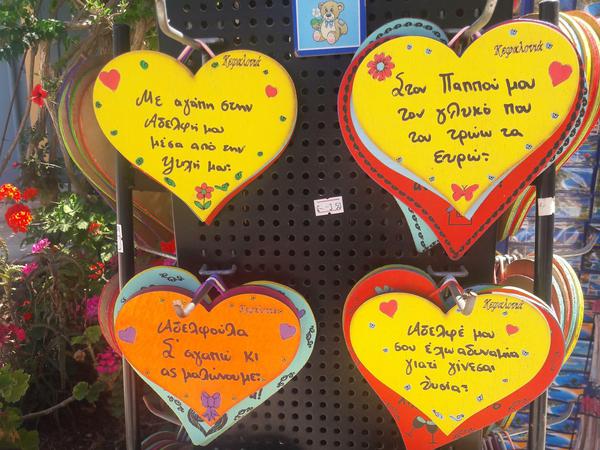 Κεφαλονιά
Με αγάπη στην
Αδελφή μου
μέσα από την
Ψυχή μου
Κεφαλονιά
Στον Παππού μου
τον γλυκό που
του τρώω τα
Ευρώ
Αδελφούλα
Σ' αγαπώ κι
ας μαλώνουμε
Κεφαλονιά
Αδελφέ μου
σου έχω αδυναμία
γιατί γίνεσαι
θυσία